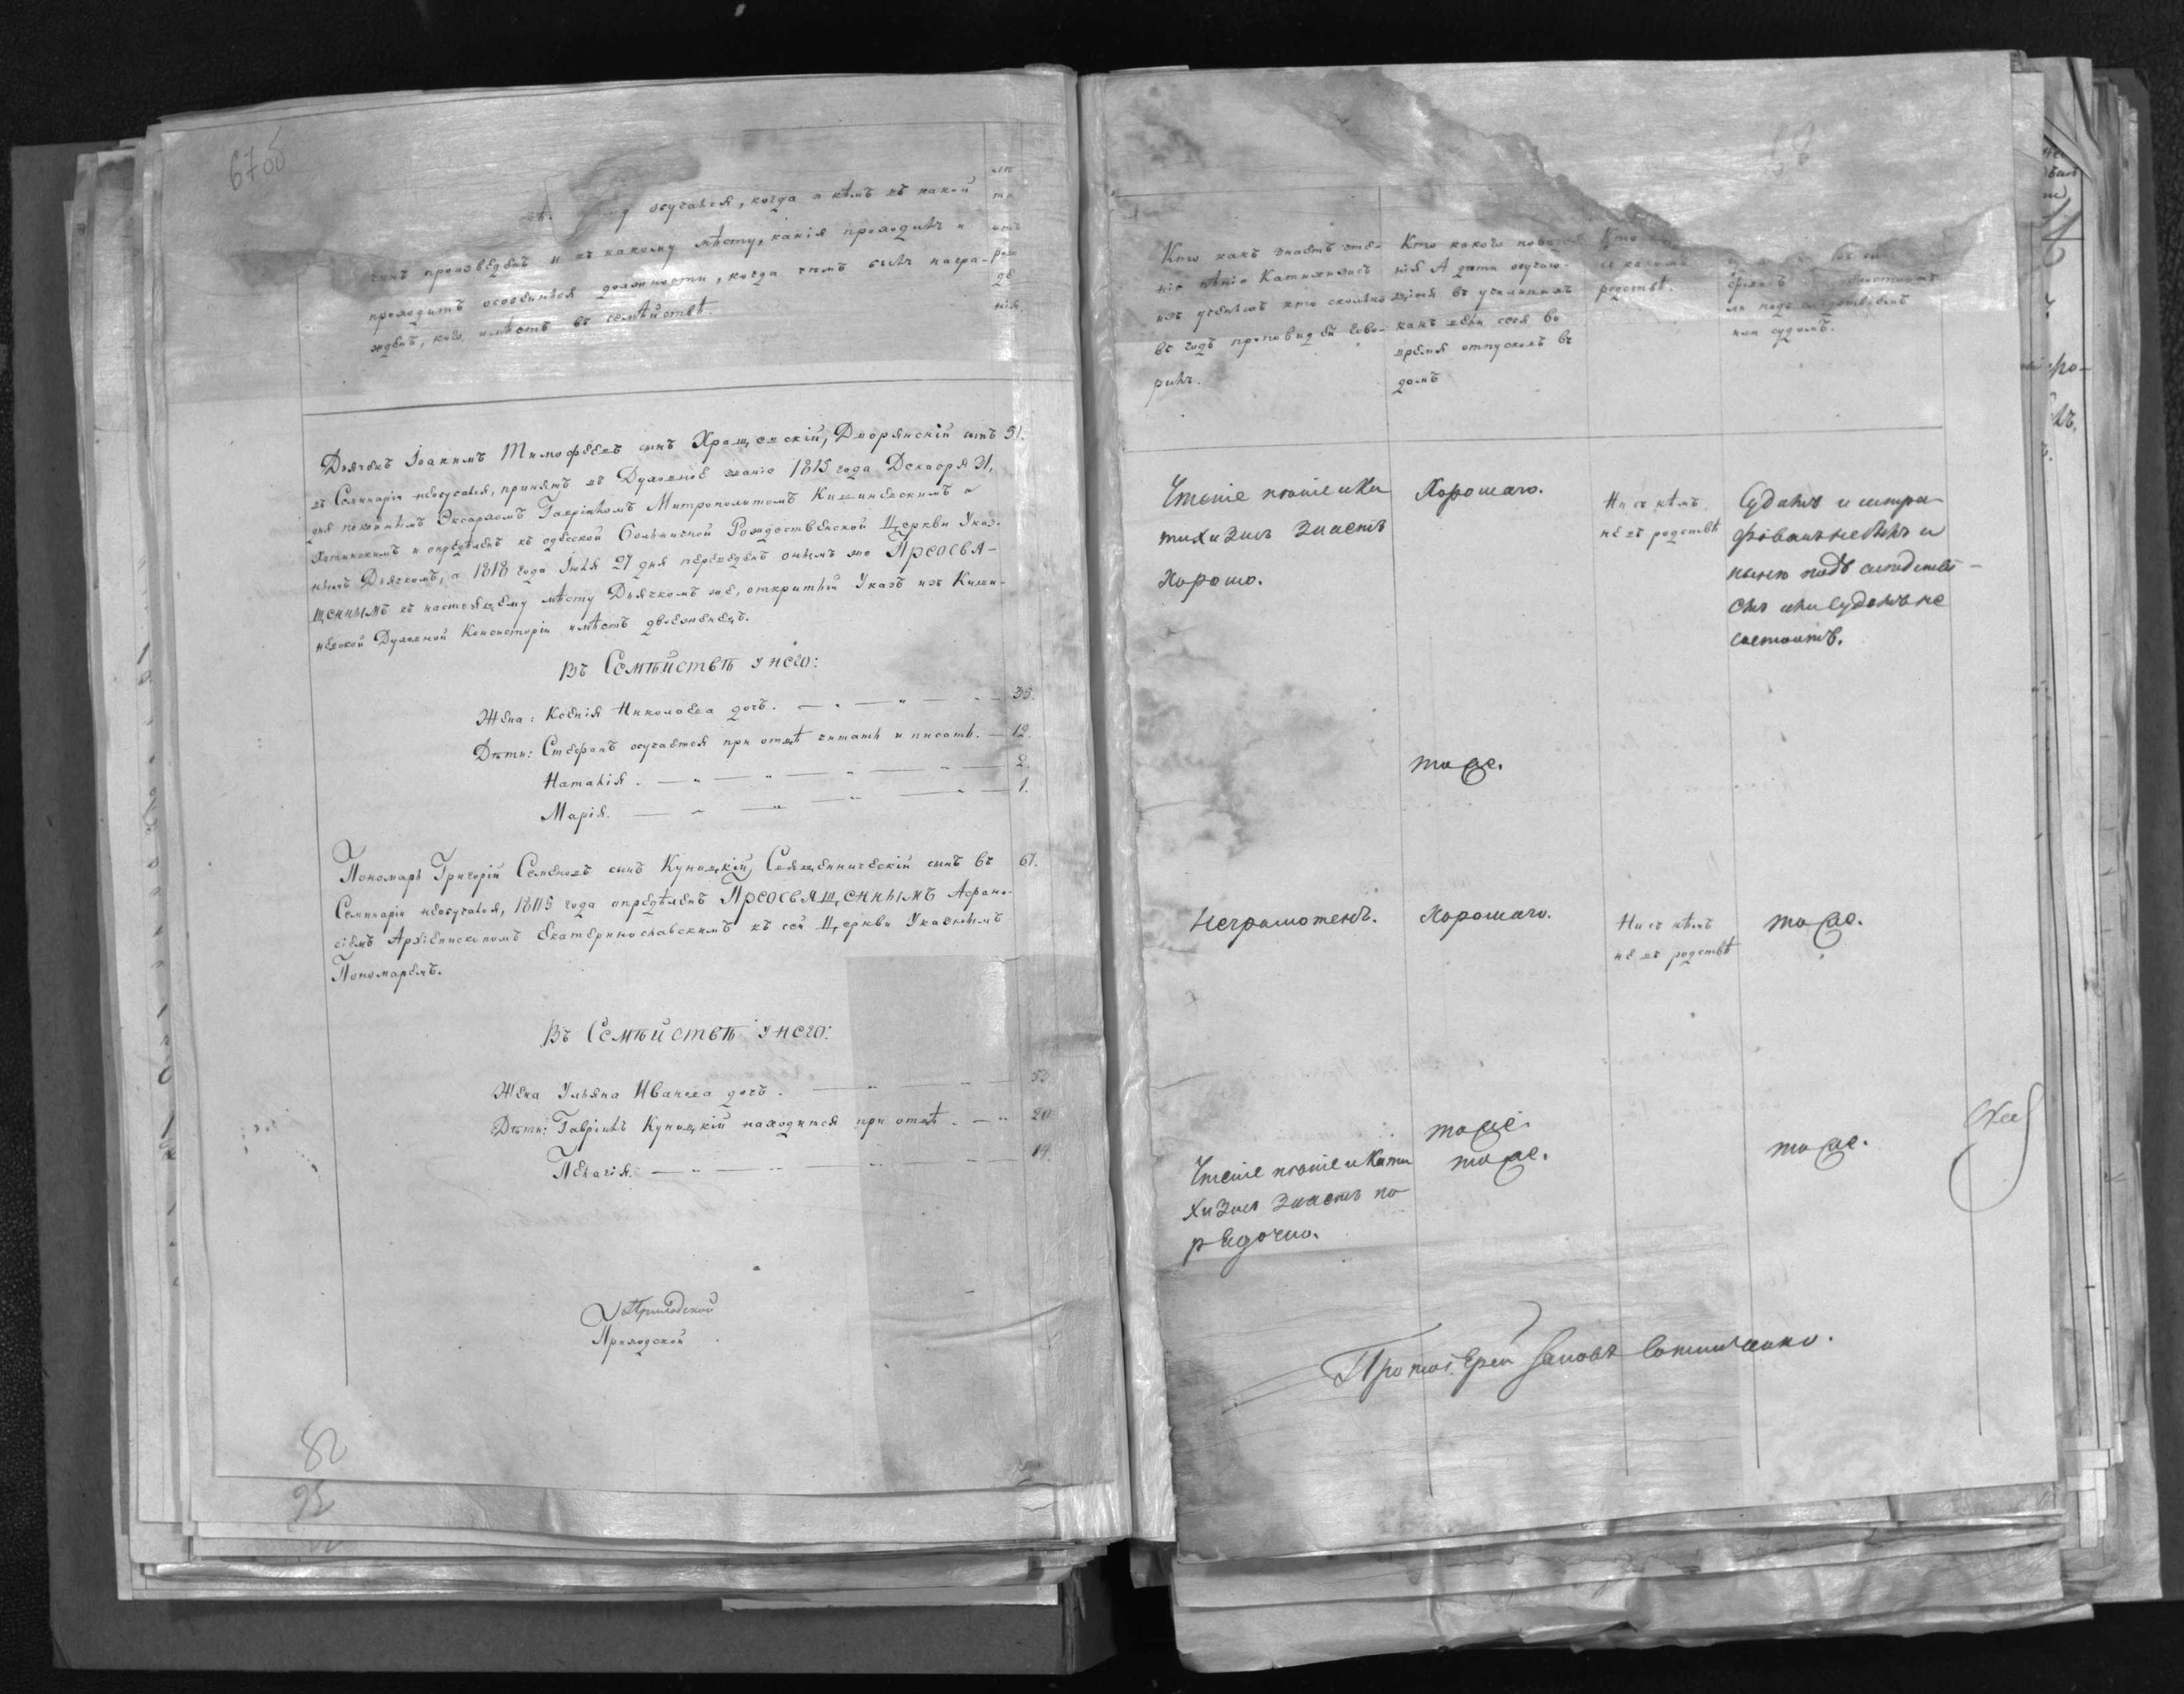 67об
обучался, когда и кѣмъ въ какой
чинъ произведенъ и къ какому мѣсту, какія проходилъ и
проходитъ особенныя должности, когда чѣмъ былъ награ-
жденъ, кого имѣетъ въ семѣйствѣ.
Дьячекъ Іоакимъ Тимофеевъ сынъ Хращевскій, Дворянскій сынъ 51.
въ Семинаріи необучался, принятъ въ Духовное званіе 1815 года Декабря 31,
дня покойнымъ Экзархомъ Гавріиломъ Митрополитомъ Кишиневскимъ и
Хотинскимъ и опредѣленъ къ одесской больничной Рождественской Церкви Указ-
нымъ Дьячкомъ, а 1818 года Іюля 27 дня переведенъ онымъ же Преосвя-
щеннымъ къ настоящему мѣсту Дьячкомъ же, открытый Указъ изъ Киши-
невской Духовной Консисторіи имѣетъ двоеженецъ.
Въ Семѣйствѣ у него:
Жена: Ксенія Николаева дочь. 35.
Дѣти: Стефанъ обучается при отцѣ читать и писать. 12.
Наталія. 2.
Марія. 1.
Пономарь Григорій Семеновъ сынъ Куницкій, Священническій сынъ въ 61.
Семинаріи необучался, 1805 года опредѣленъ Преосвященнымъ Афана-
сіемъ Архіепископомъ Екатеринославскимъ къ сей Церкви Указнымъ
Пономаремъ.
Въ Семѣйствѣ у него:
Жена Ульяна Иванова дочь. 53
Дѣти: Гавріилъ Куницкій находится при отцѣ. 20
Пелагія. 14.
Приходской
82
95
Кто какъ знаетъ чте-
ніе пѣніе Катихизисъ
изъ ученыхъ кто сколько
въ годъ проповѣдей гово-
рилъ.
Кто какого поведе
нія А дѣти обучаю-
щіеся въ училищахъ
какъ вели себя во
время отпусковъ въ
домъ
Кто
въ какомъ
родствѣ.
ли подъ слѣдствіемъ
или судомъ.
Чтеніе пѣніе и Ка
тихизисъ знаетъ
Хорошо.
Хорошаго.
Ни съ кѣмъ
не въ родствѣ
Судимъ и штра
фованъ не былъ и
нынѣ подъ слѣдстві-
емъ или судомъ не
состоитъ.
тоже.
Неграмотенъ.
Хорошаго.
Ни съ кѣмъ
не въ родствѣ
тоже.
тоже.
Чтеніе пѣніе и Кати
хизисъ знаетъ по
рядочно.
тоже.
тоже.
Протоіерей Іаковъ